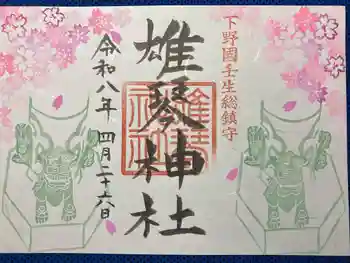 下野國壬生総鎮守
雄琴神社
令和八年 四月二十六日